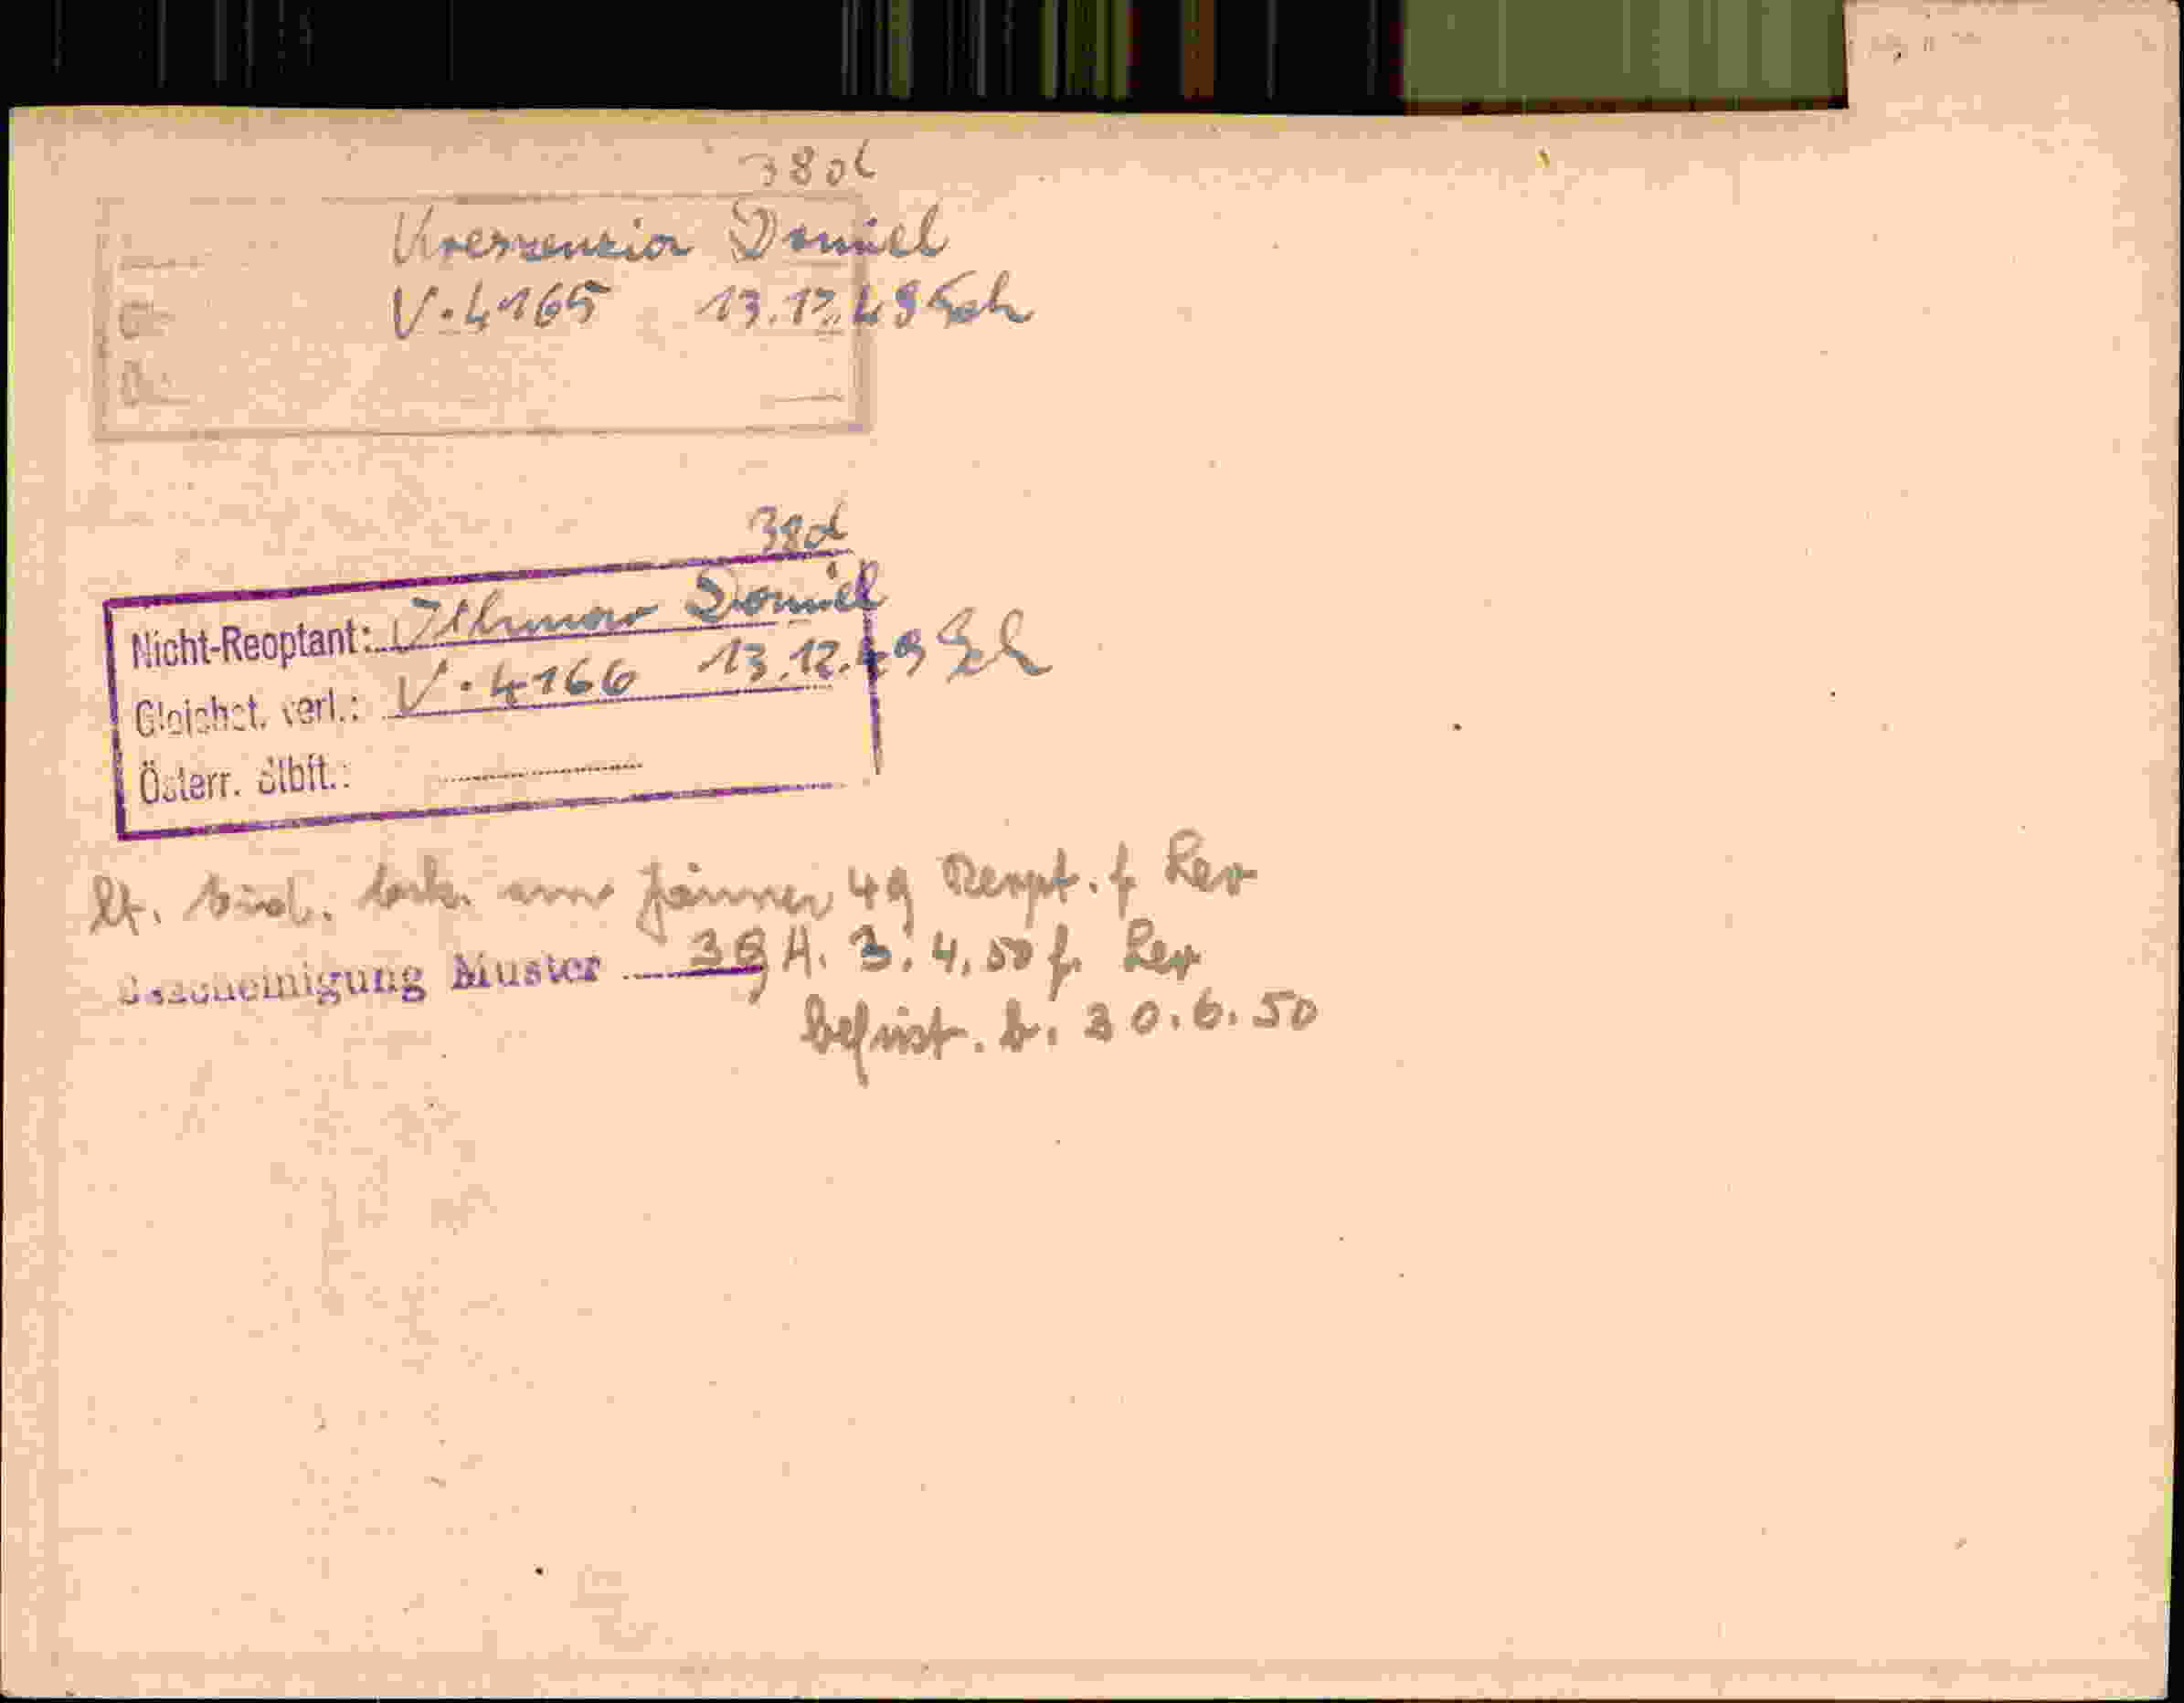 38d
Kreszenzia Daniel
V. 4165 13.12.49 Sch
38d
Nicht-Reoptant: Othmar Daniel
Gleichst. verl.: V. 4166 13.12.49
Österr. Stbft.:
lt. Jänner 49 Reopt. f
Bescheinigung Muster 39 A. 3.4.50 f.
befrist. b. 30.6.50